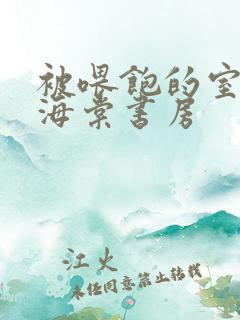 被喂饱的室
海棠书房
江火
未经同意禁止转载